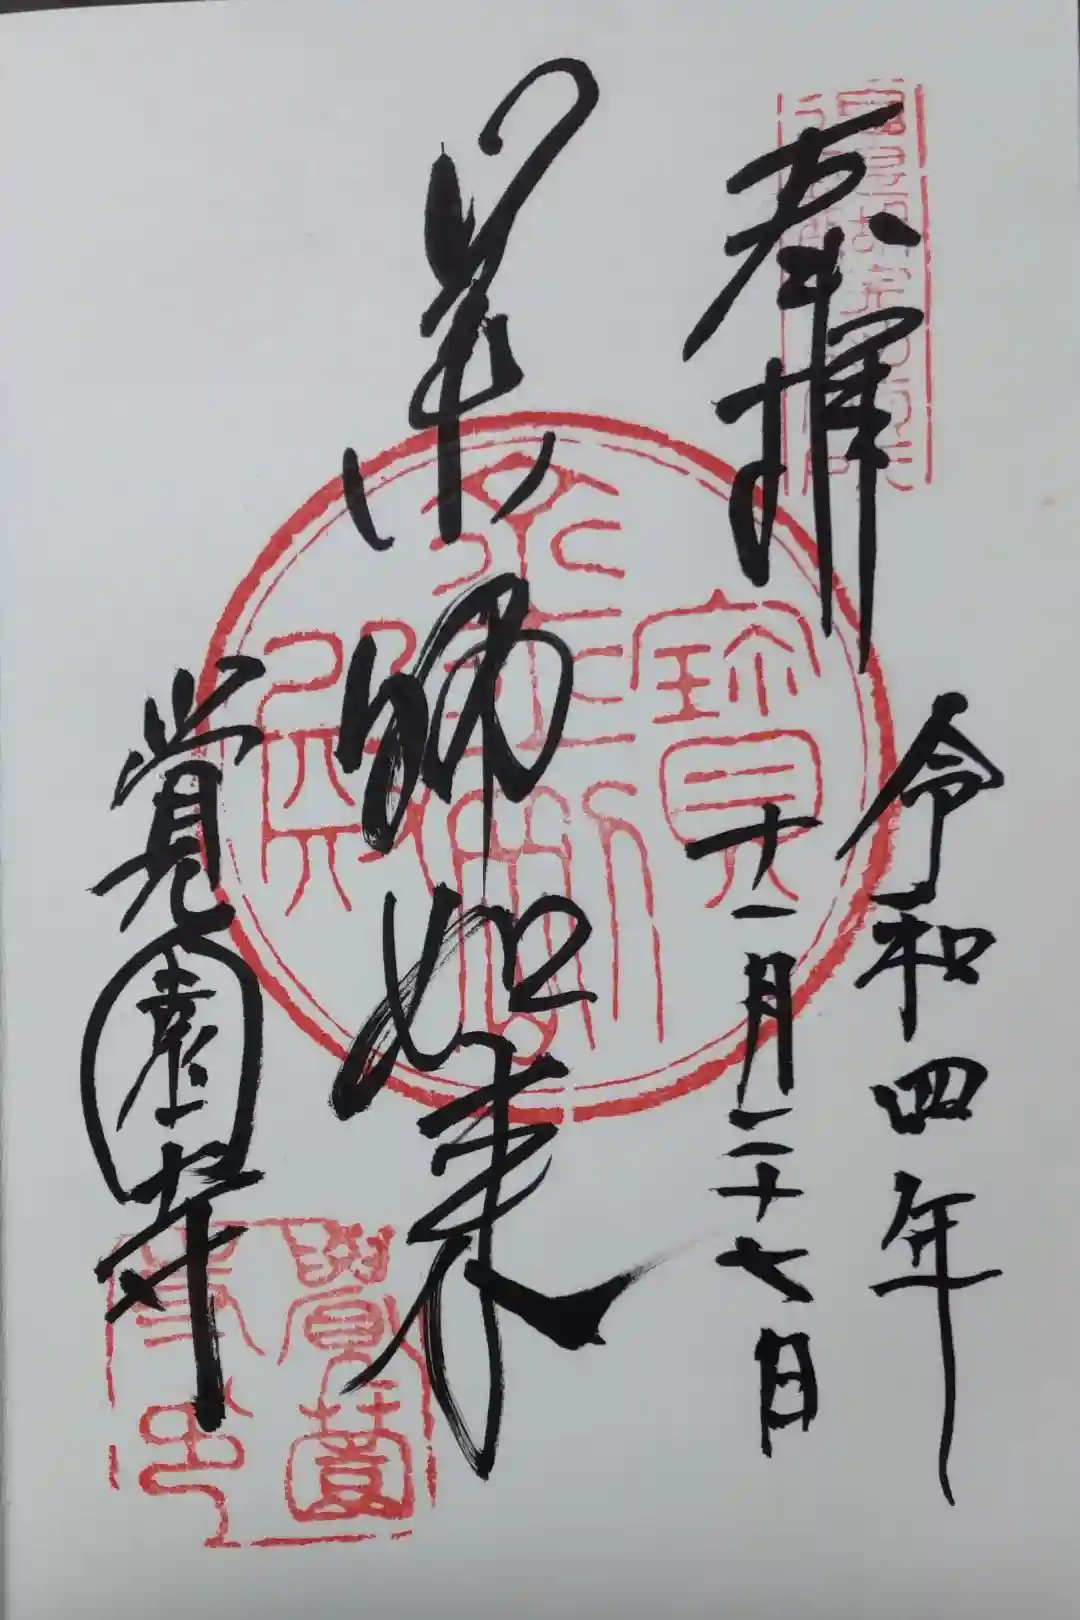 奉拝
令和四年
十一月二十七日
薬師如来
覚園寺
覺園
寺印